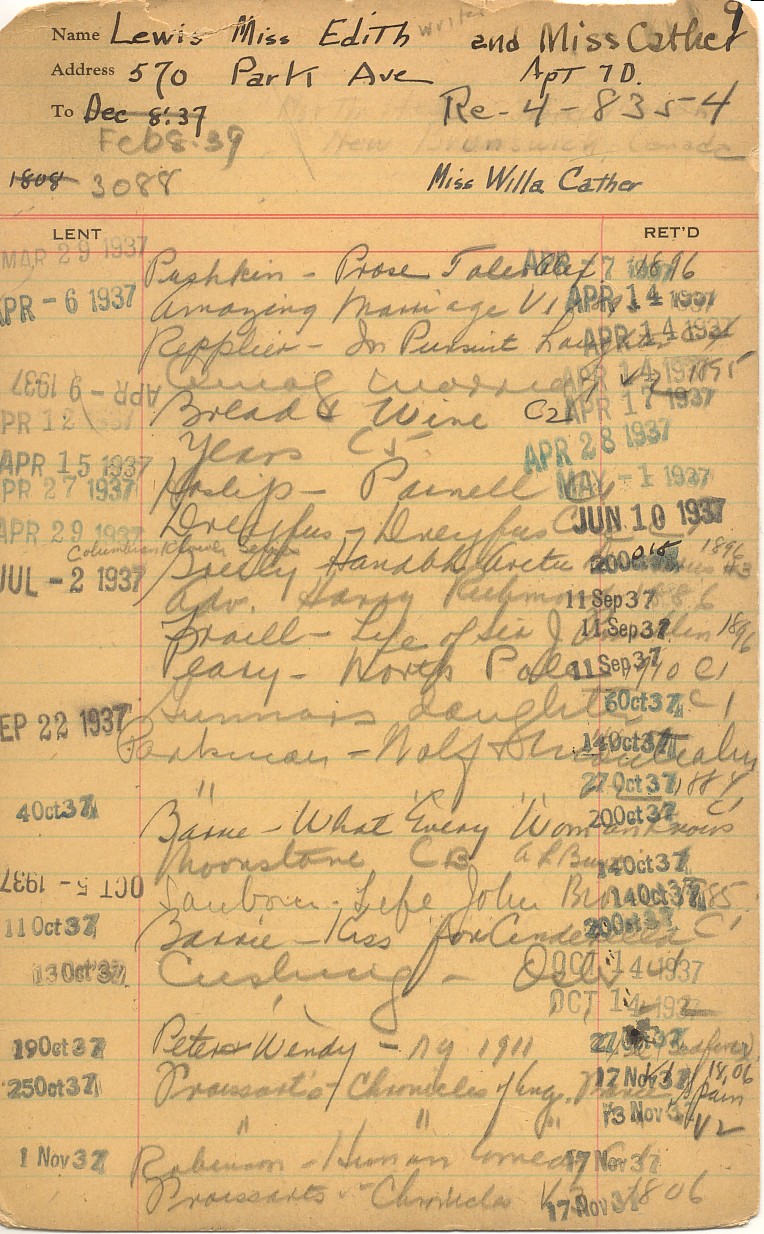 9
Name Lewis Miss Edith writer and Miss Cather
Address 570 Park Ave Apt 7D.
To Dec 8.37 Re-4-8354
Feb 8.39 New Brunswick Canada
1808 3088 Miss Willa Cather
LENT RET'D
MAR 29 1937 Pushkin - Prose Tales APR -7 1937 1896
APR -6 1937 Amazing Marriage V1 APR 14 1937
Repplier - In Pursuit APR 14 1937
APR -9 1937 Amazing Marriage V2 1895 APR 14 1937
APR 12 Bread & Wine C2 APR 17 1937
APR 15 1937 Years C5. APR 28 1937
APR 27 1937 Haslip - Parnell MAY -1 1937
APR 29 1937 Dreyfus - Dreyfus JUN 10 1937
JUL -2 1937 Greely Handbk Arctic 1896 #3
Adv. Harry Richmond 11 Sep 37 886
Traill - Life of Sir J 11 Sep 37 1896
Peary - North Pole 11 Sep 37 1910 C1
SEP 22 1937 Gunnars daughter 6 Oct 37 C1
Parkman - Wolf & 14 Oct 37
" " " 27 Oct 37 1884
4 Oct 37 Barrie - What Every Woman Knows C1 20 Oct 37
Moonstone 14 Oct 37
OCT -5 1937 Sanborn - Life John 14 Oct 37 85
11 Oct 37 Barrie - Kiss for Cinderella C1 20 Oct 37
13 Oct 37 Cushing - Osler OCT 14 1937
OCT 14 1937
19 Oct 37 Peter & Wendy - NY 1911 27 Oct 37
25 Oct 37 Froissart's Chronicles of Eng. France Spain 17 Nov 37
" " " V2 3 Nov 37
1 Nov 37 Robinson - Human Comedy 17 Nov 37
Froissarts - Chronicles 1806 17 Nov 37